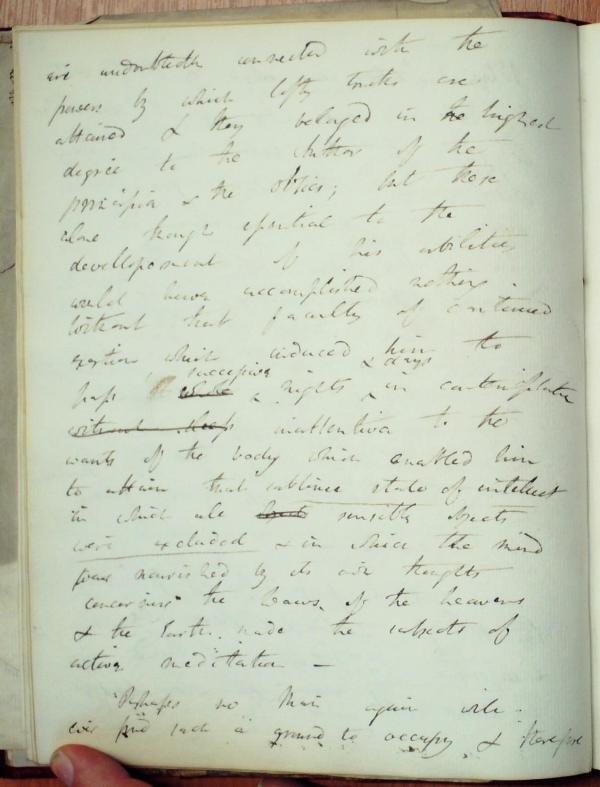 are undoubtedly connected with the
powers by which lofty truths are
attained & they belonged in the highest
degree to the Author of the
principia & the optics; but these
alone though essential to the
developement of his abilities
would have accomplished nothing.
Without that faculty of continued
exertion which induced him to
successive & days
pass whole nights in contemplation
without sleep inattentive to the
wants of the body which enabled him
to attain that sublime state of intellect
in which all sensible objects
were excluded & in which the mind
nourished by its own thoughts
concerning the laws of the heavens
& the Earth made the subjects of
active meditation —
Perhaps no Man again will
ever find such a ground to occupy & therefore